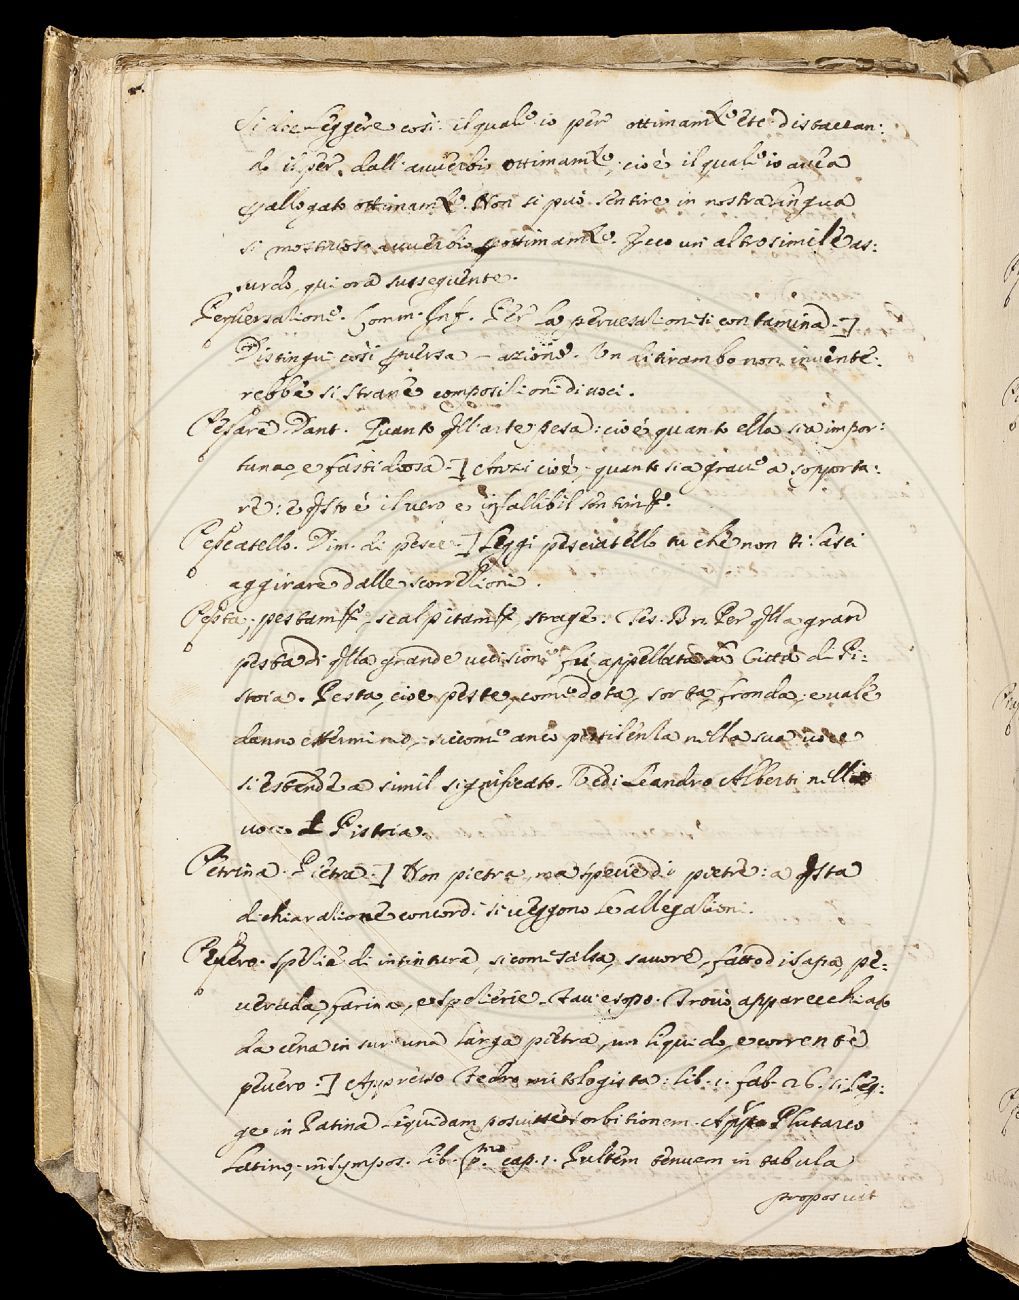 Si dee leggere così: il quale io per ottimam.te etc. distaccan:
do il per, dall'avverbio ottimam.te, cioè il quale io avea
gallogato ottimam.te. Non si può sentire in nostra lingua
sì mostruoso avverbio, perottimam.te. Ecco un altro simile as:
surdo, qui ora susseguente.
Perversatione. Comm. Inf. Per la perversatione si contamina.]
Distingui così perversa - azione. Un ditirambo non invente:
rebbe sì strane compositioni di voci.
Pesare Dant. Quanto q.ll'arte pesa: cioè quanto ella sia impor:
tuna, e fastidiosa.] Anzi cioè, quanto sia grave a sopporta:
re: e q.sto è il vero e infallibil sentim.to.
Pesceatello. Dim. di pesce.] Leggi pesciatello tu che non ti lasci
aggirare dalle scorrettioni.
Pesta, pestam.to, scalpitam.to, strage. Tes. Br. Per q.lla gran
pesta di q.lla grande uccisione fu appellata la Città di Pi:
stoia. Pesta, cioè peste, come dota, sorta, fronda, e vale
danno esterminio, siccome anco pestilenza nella sua voce
si estende a simil significato. Vedi Leandro Alberti nella
voce Pistoia.
Petrina. Pietra.] Non pietra, ma specie di pietre: a q.sta
dichiaratione concordi si veggono le allegationi.
Pevero. Spetie di intintura, sicome salsa, savore, fatto di sapa, pe:
verada, farina, e spetierie. Fav. esopo. Trovò apparecchiato
da cena in sur una larga pietra, un liquido, e corrente
pevero.] Appresso Fedro mitologista: lib. 1. fab. 26. si leg:
ge in Patina liquidam posuisse sorbitionem. App.o Plutarco
Latino, in sympos. lib. p.mo cap. 1. Pultem tenuem in tabula
proposuit